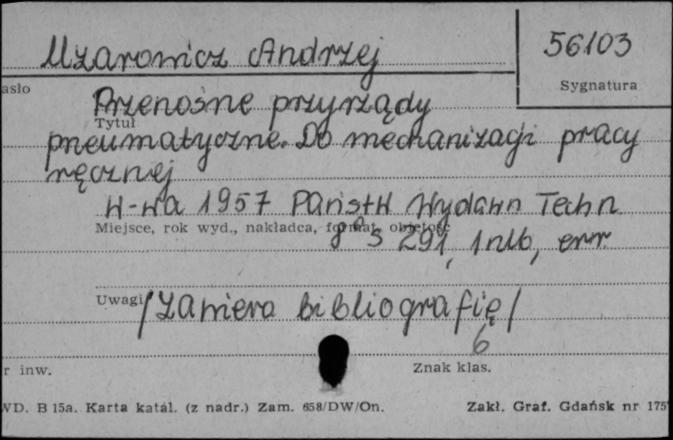 Uzarowicz Andrzej
56103
asło
Sygnatura
Przenośne przyrządy
Tytuł
pneumatyczne. Do mechanizacji pracy
ręcznej
W-wa 1957 Państw Wydawn Techn
Miejsce, rok wyd., nakładca, format, objętość
8° s 291, 1 nlb, err
Uwagi /Zawiera bibliografię/
6
r inw.
Znak klas.
WD. B 15a. Karta katal. (z nadr.) Zam. 658/DW/On.
Zakł. Graf. Gdańsk nr 175